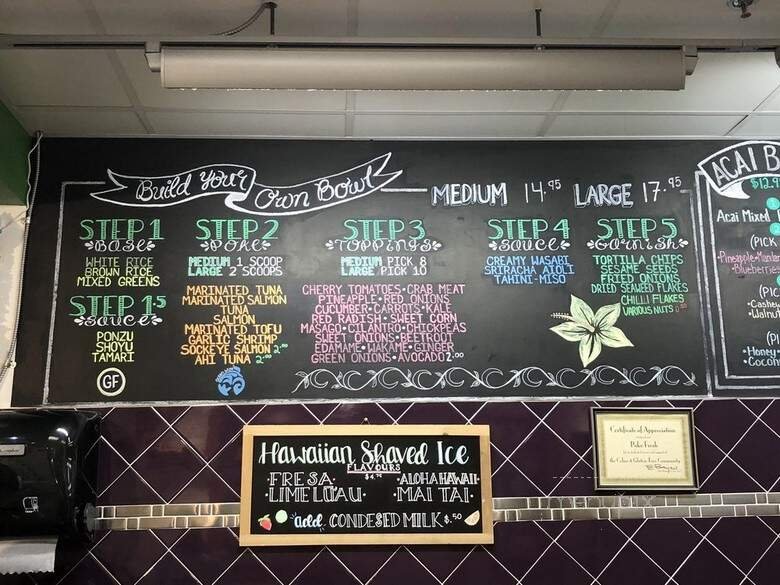 Build Your Own Bowl
MEDIUM 14.95 LARGE 17.95
STEP 1
BASE
WHITE RICE
BROWN RICE
MIXED GREENS
STEP 1.5
SAUCE
PONZU
SHOYU
TAMARI
GF
STEP 2
POKE
MEDIUM 1 SCOOP
LARGE 2 SCOOPS
MARINATED TUNA
MARINATED SALMON
TUNA
SALMON
MARINATED TOFU
GARLIC SHRIMP
SOCKEYE SALMON 2.00
AHI TUNA 2.00
STEP 3
TOPPINGS
MEDIUM PICK 8
LARGE PICK 10
CHERRY TOMATOES • CRAB MEAT
PINEAPPLE • RED ONIONS
CUCUMBER • CARROTS • KALE
RED RADISH • SWEET CORN
MASAGO • CILANTRO • CHICKPEAS
SWEET ONIONS • BEETROOT
EDAMAME • WAKAME • GINGER
GREEN ONIONS • AVOCADO 2.00
STEP 4
SAUCE
CREAMY WASABI
SRIRACHA AIOLI
TAHINI-MISO
STEP 5
GARNISH
TORTILLA CHIPS
SESAME SEEDS
FRIED ONIONS
DRIED SEAWEED FLAKES
CHILLI FLAKES
VARIOUS NUTS
ACAI B
$12.9
Acai Mixed
(PICK
Pineapple • Mandar
Blueberrie
(PIC
• Cashew
• Walnut
(PI
• Honey •
• Cocon
Hawaiian Shaved Ice
FLAVOURS
$4.75
• FRESA • ALOHA HAWAII
• LIME LUAU • MAI TAI
add CONDESED MILK $.50
Certificate of Appreciation
Poke Fresh